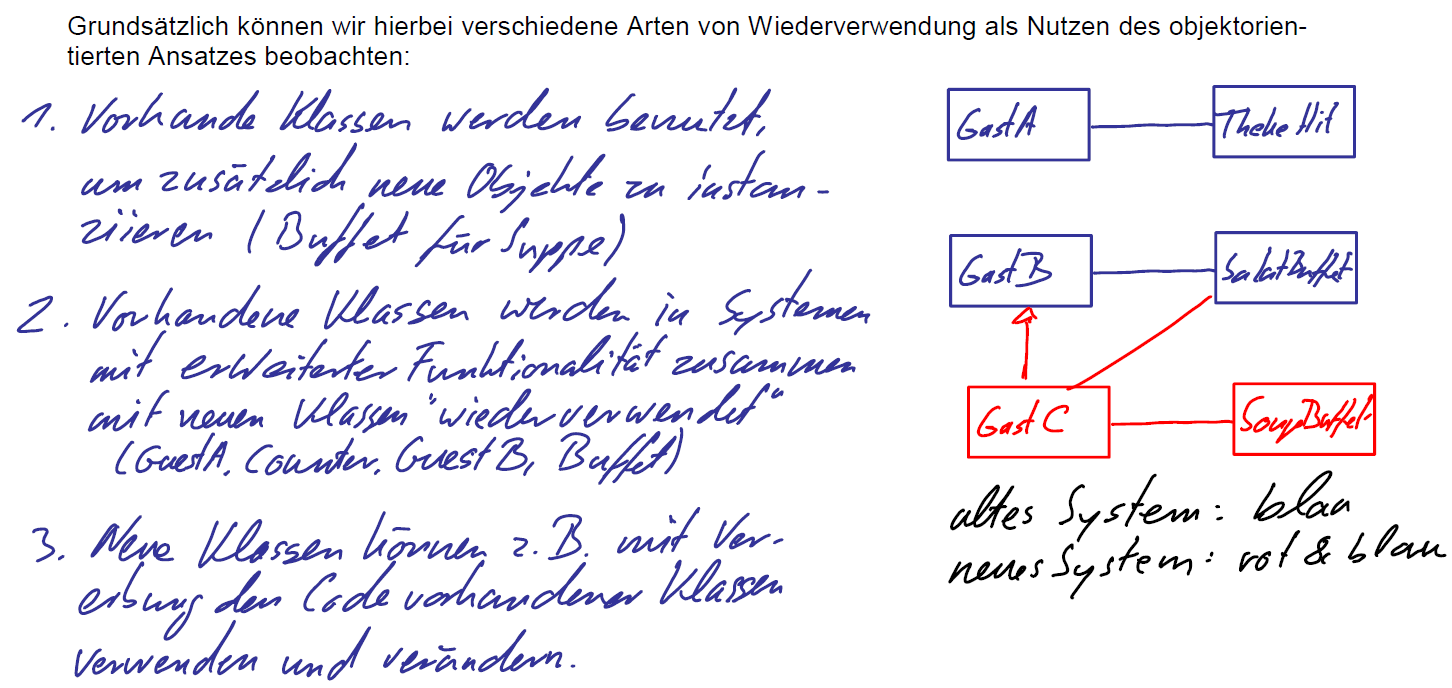 Grundsätzlich können wir hierbei verschiedene Arten von Wiederverwendung als Nutzen des objektorien-
tierten Ansatzes beobachten:
1. Vorhande Klassen werden benutzt,
um zusätzlich neue Objekte zu instan-
ziieren (Buffet für Suppe)
2. Vorhandene Klassen werden in Systemen
mit erweiterter Funktionalität zusammen
mit neuen Klassen "wiederverwendet"
(GuestA, Counter, GuestB, Buffet)
3. Neue Klassen können z.B. mit Ver-
erbung den Code vorhandener Klassen
verwenden und verändern.
GastA
Theke Hit
GastB
SalatBuffet
GastC
SoupBuffet
altes System: blau
neues System: rot & blau